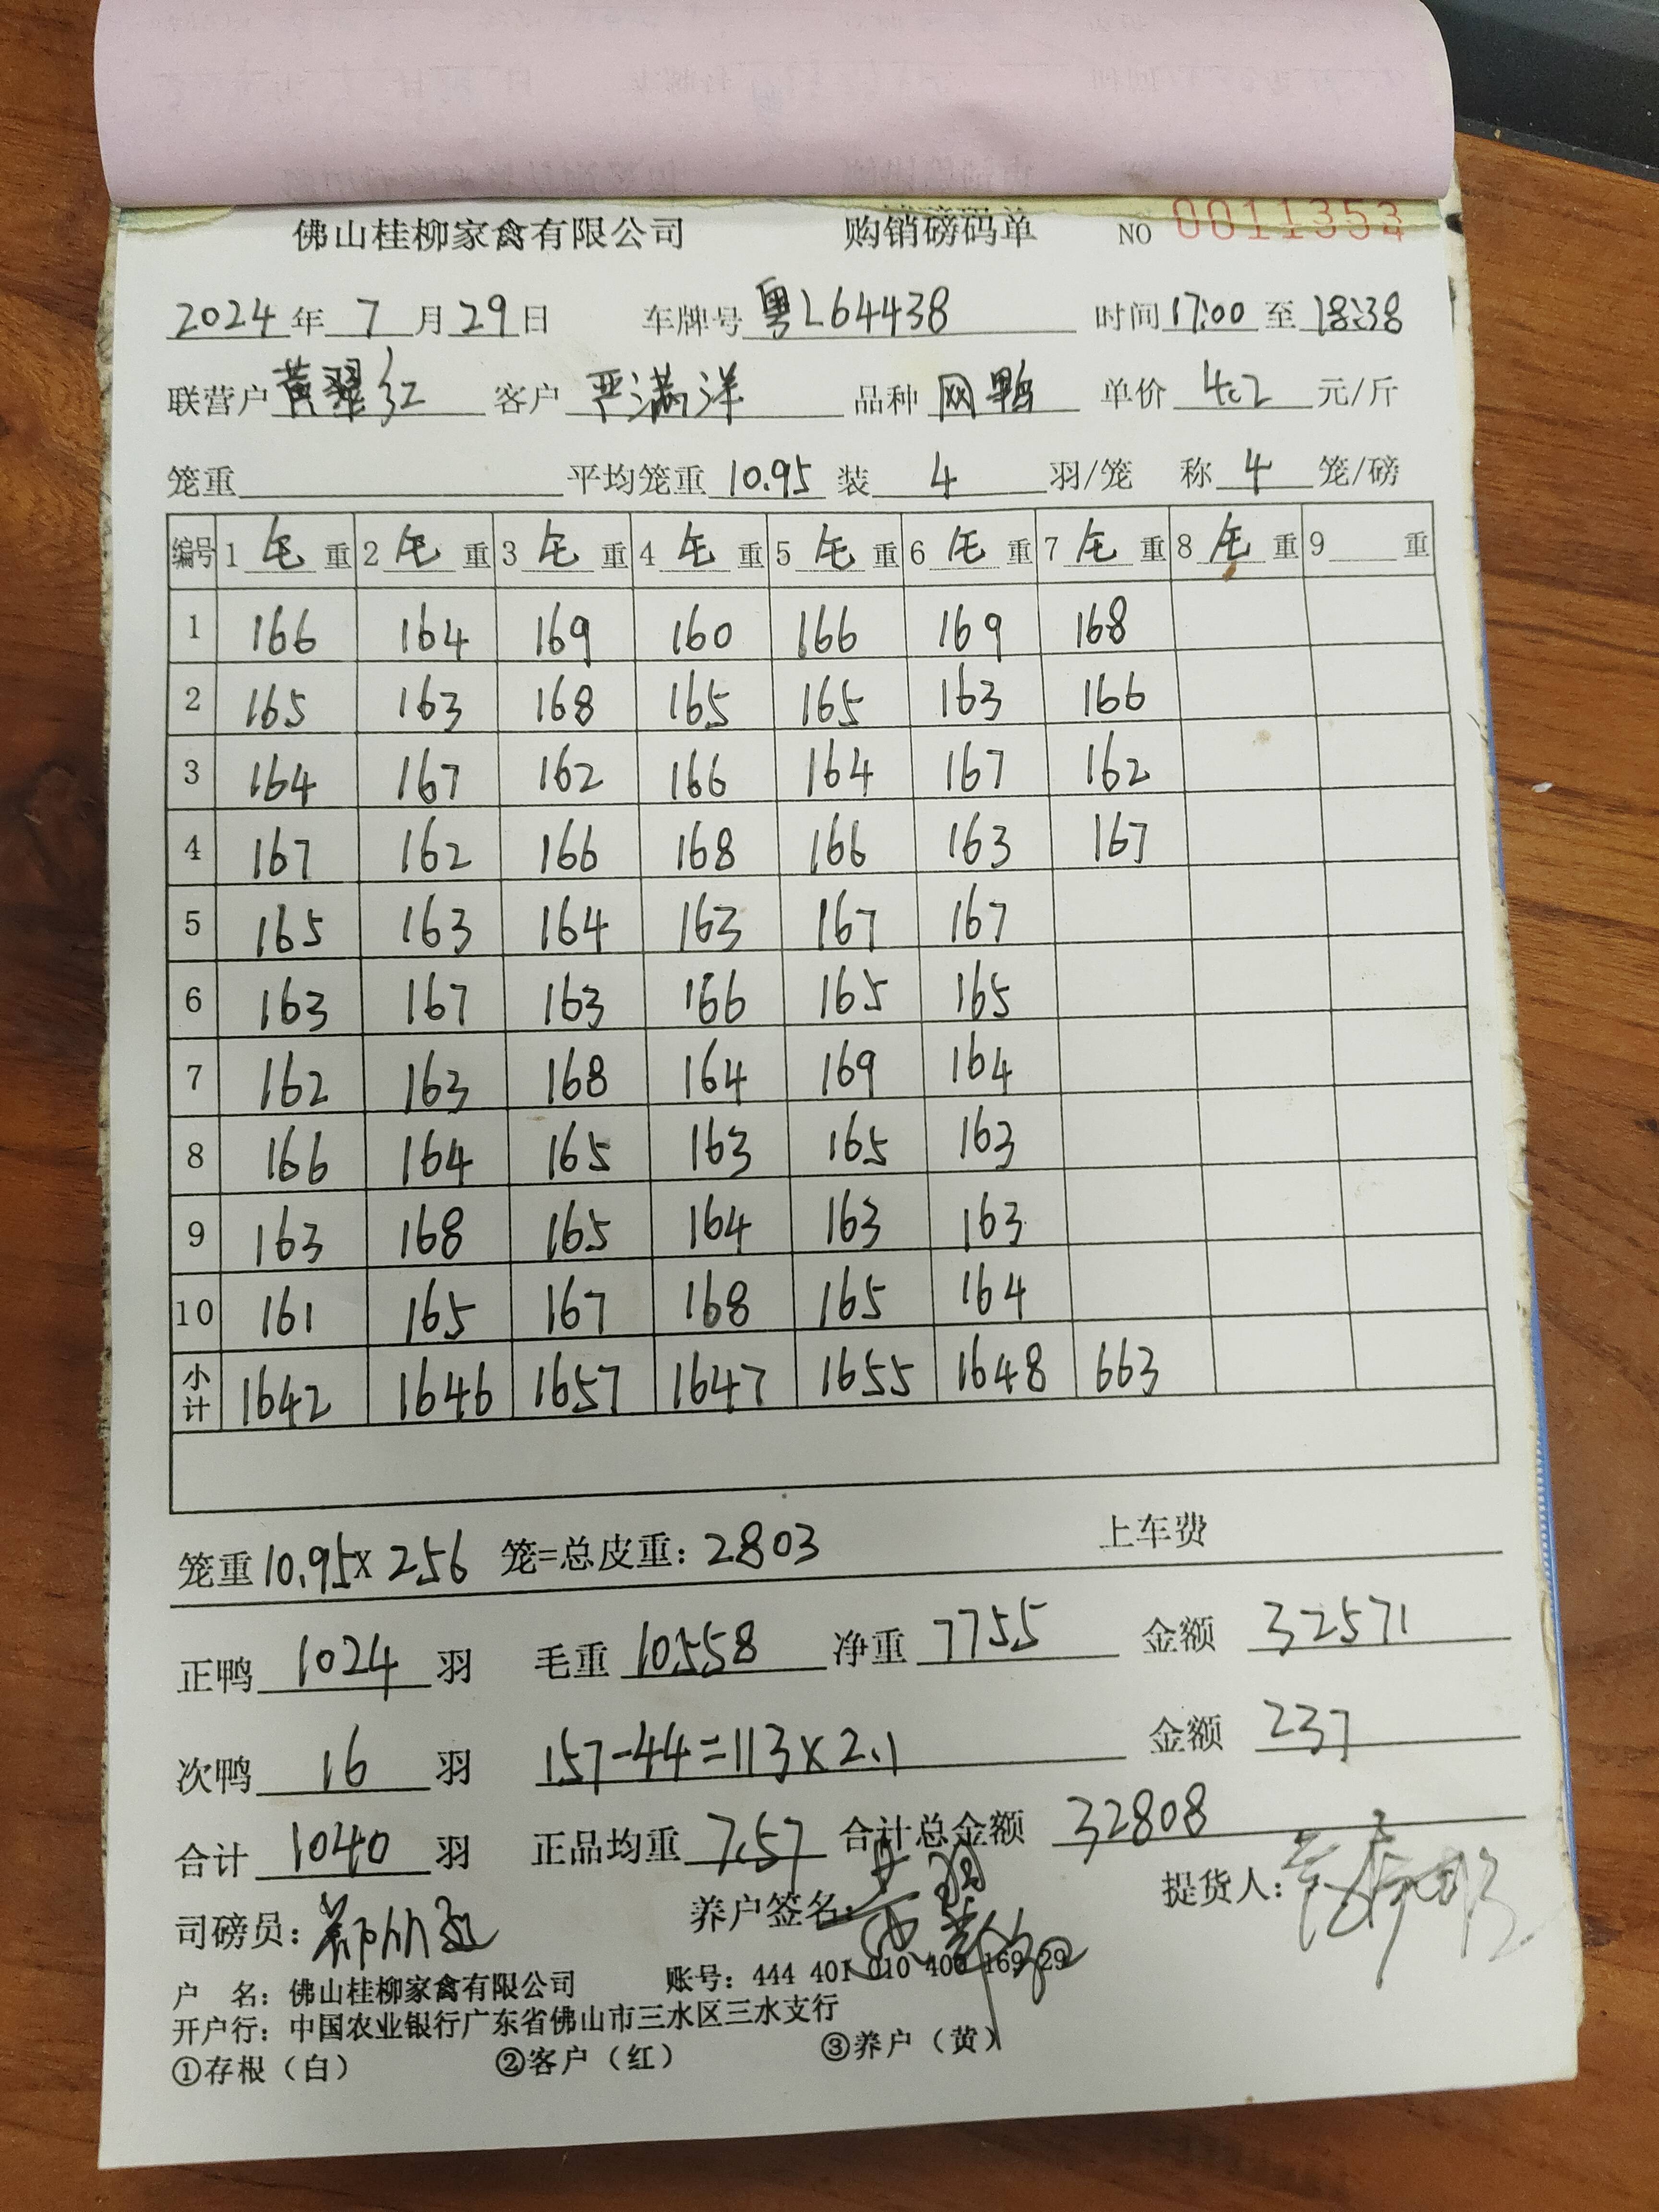 佛山桂柳家禽有限公司 购销磅码单 NO 0011353
2024年 7 月 29 日 车牌号 粤L64438 时间 17:00 至 18:38
联营户 黄翠红 客户 严满洋 品种 网鸭 单价 4.2 元/斤
笼重 平均笼重 10.95 装 4 羽/笼 称 4 笼/磅
编号 1 毛 重 2 毛 重 3 毛 重 4 毛 重 5 毛 重 6 毛 重 7 毛 重 8 毛 重 9 重
1 166 164 169 160 166 169 168
2 165 163 168 165 165 163 166
3 164 167 162 166 164 167 162
4 167 162 166 168 166 163 167
5 165 163 164 163 167 167
6 163 167 163 166 165 165
7 162 163 168 164 169 164
8 166 164 165 163 165 163
9 163 168 165 164 163 163
10 161 165 167 168 165 164
小计 1642 1646 1657 1647 1655 1648 663
笼重 10.95 x 256 笼=总皮重: 2803 上车费
正鸭 1024 羽 毛重 10558 净重 7755 金额 32571
次鸭 16 羽 157-44=113x2.1 金额 237
合计 1040 羽 正品均重 7.57 合计总金额 32808
司磅员: 养户签名: 提货人:
户 名: 佛山桂柳家禽有限公司 账号: 444 401 010 400 169 29
开户行: 中国农业银行广东省佛山市三水区三水支行
①存根（白） ②客户（红） ③养户（黄）